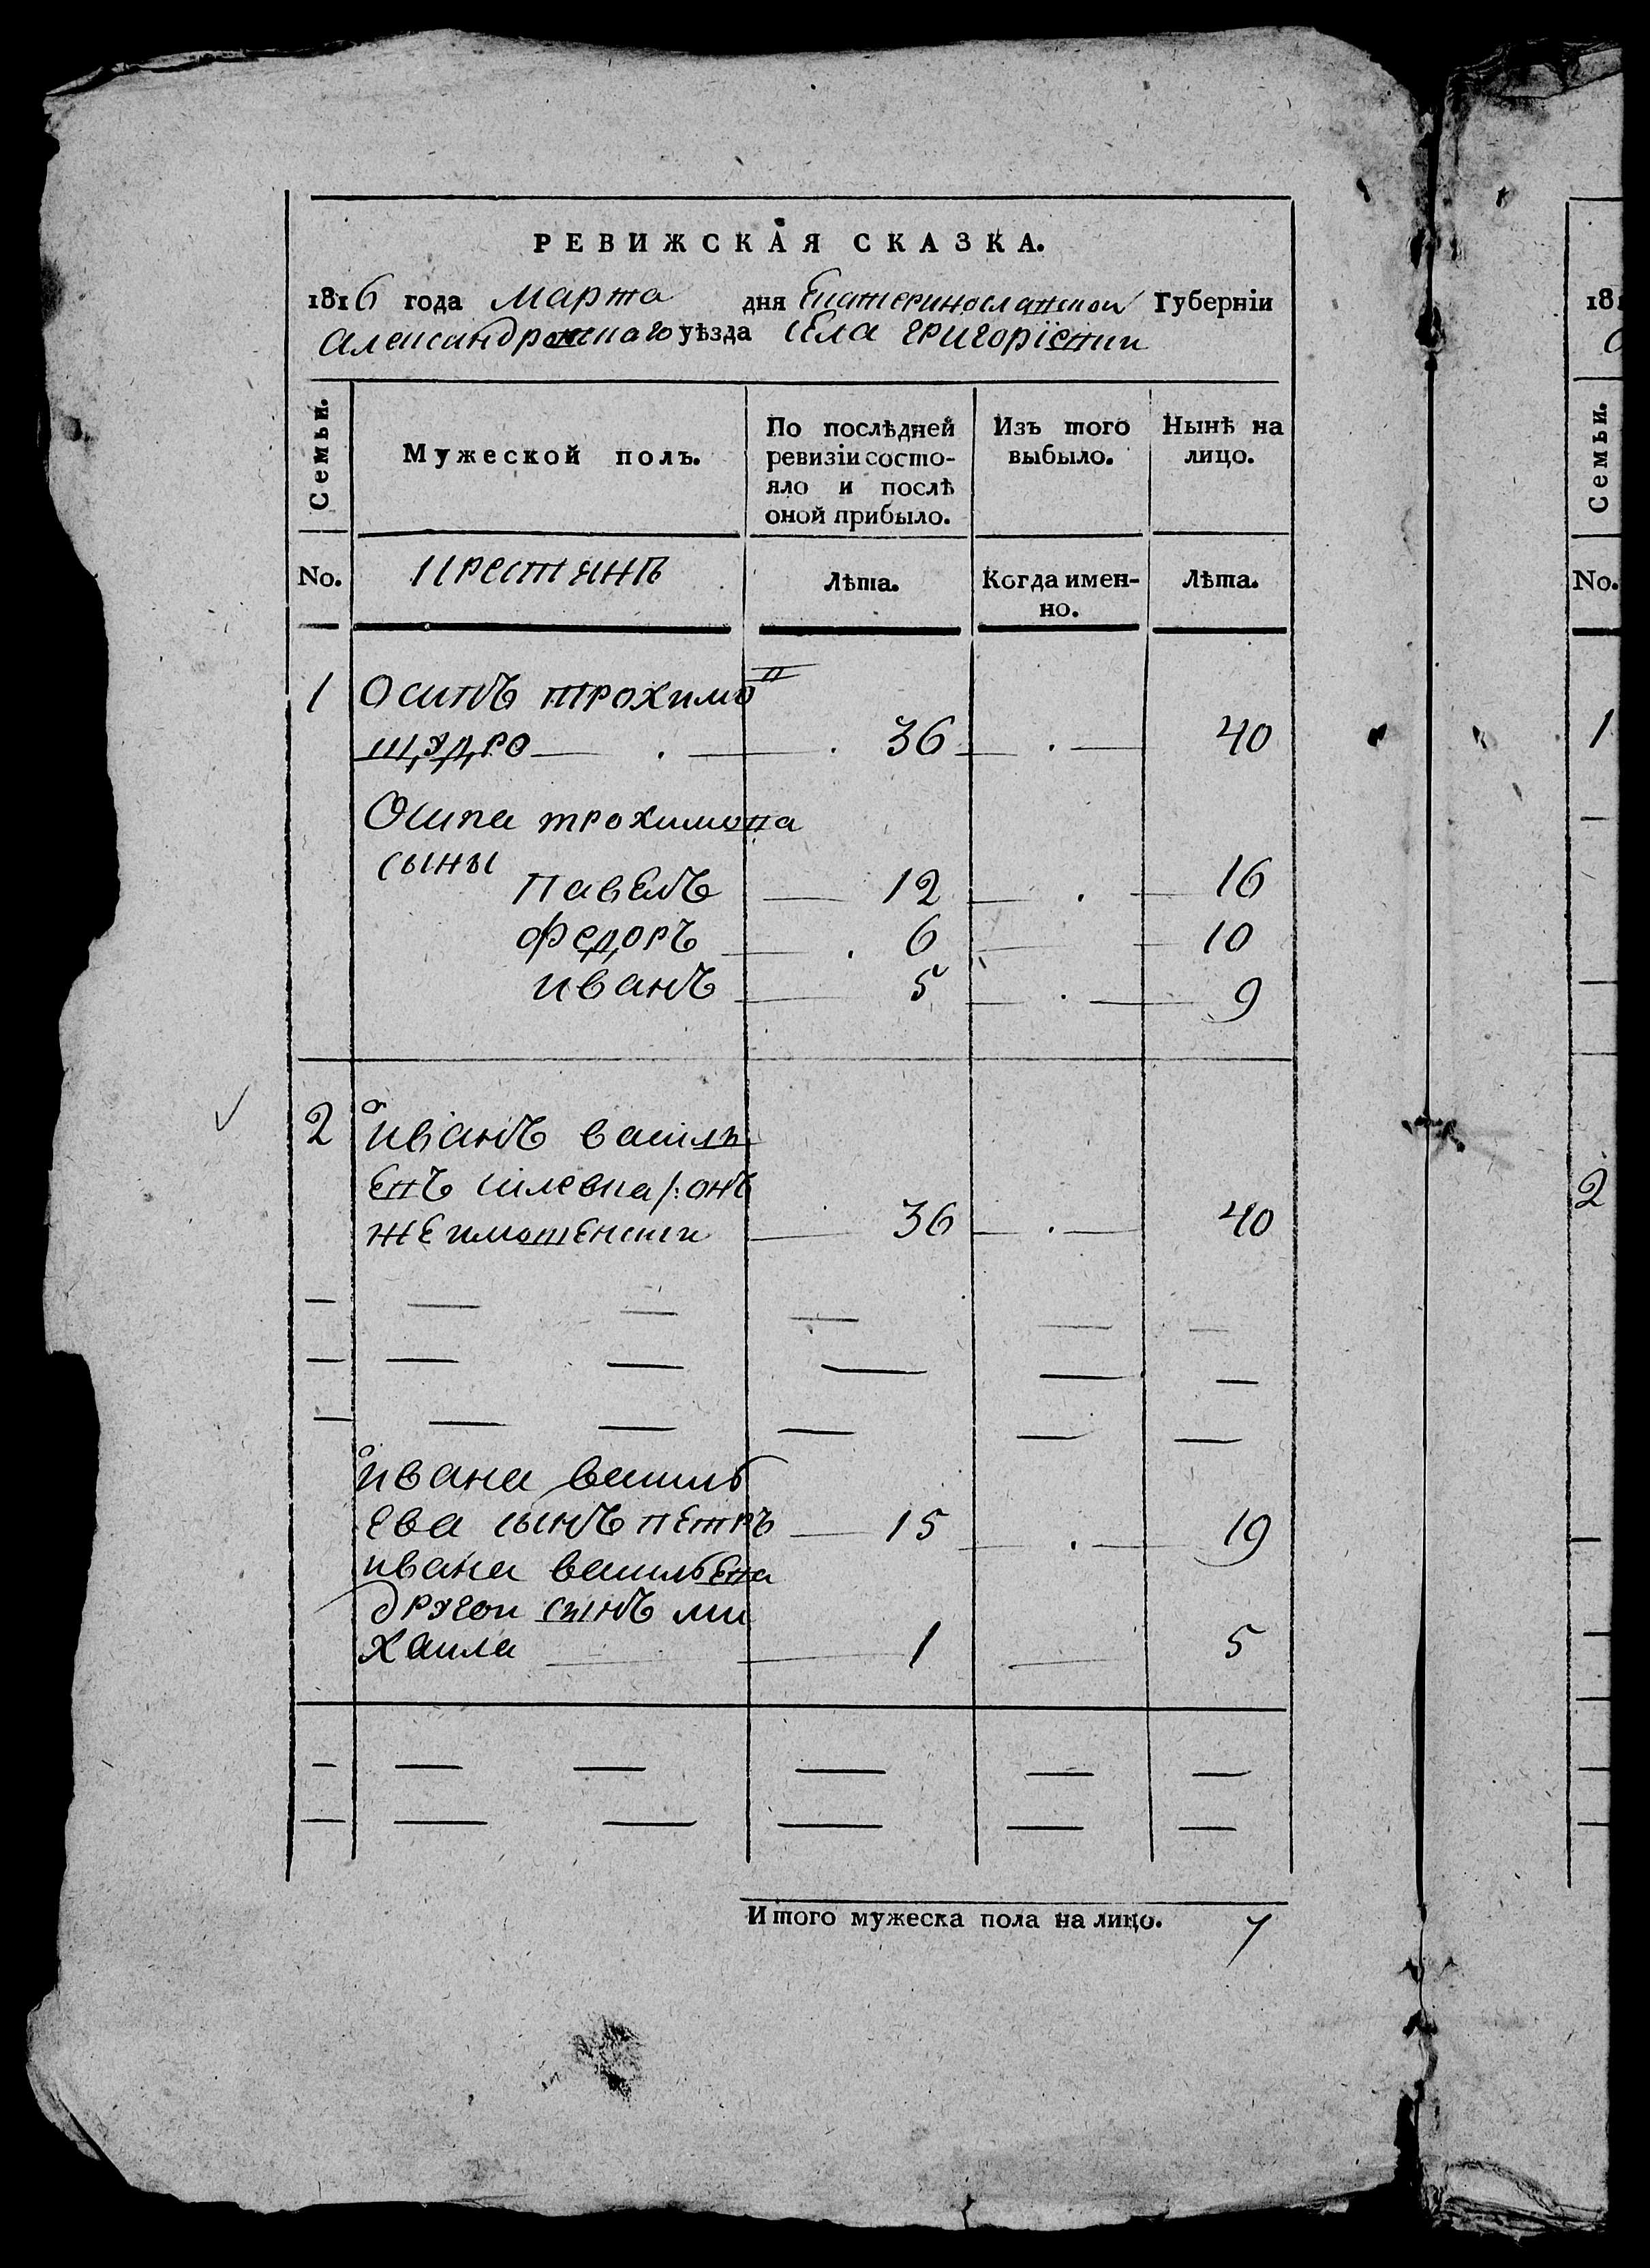 РЕВИЖСКАЯ СКАЗКА.
1816 года Марта дня Екатеринославской Губерніи
Александровского уѣзда села григорієвки
Семьи.
Мужеской полъ.
По послѣдней
ревизіи состо-
яло и послѣ
оной прибыло.
Изъ того
выбыло.
Нынѣ на
лицо.
No.
крестянъ
Лѣта.
Когда имен-
но.
Лѣта.
1 Осипъ трохимо
щудро 36 40
Осипа трохимова
сыны
Павелъ 12 16
федоръ 6 10
иванъ 5 9
2 иванъ василь
евъ /: онъ
же 36 40
ивана василь
ева сынъ петръ 15 19
ивана васильева
другой сынъ ми
хаила 1 5
Итого мужеска пола на лицо. 7
181
Семьи.
No.
1
2